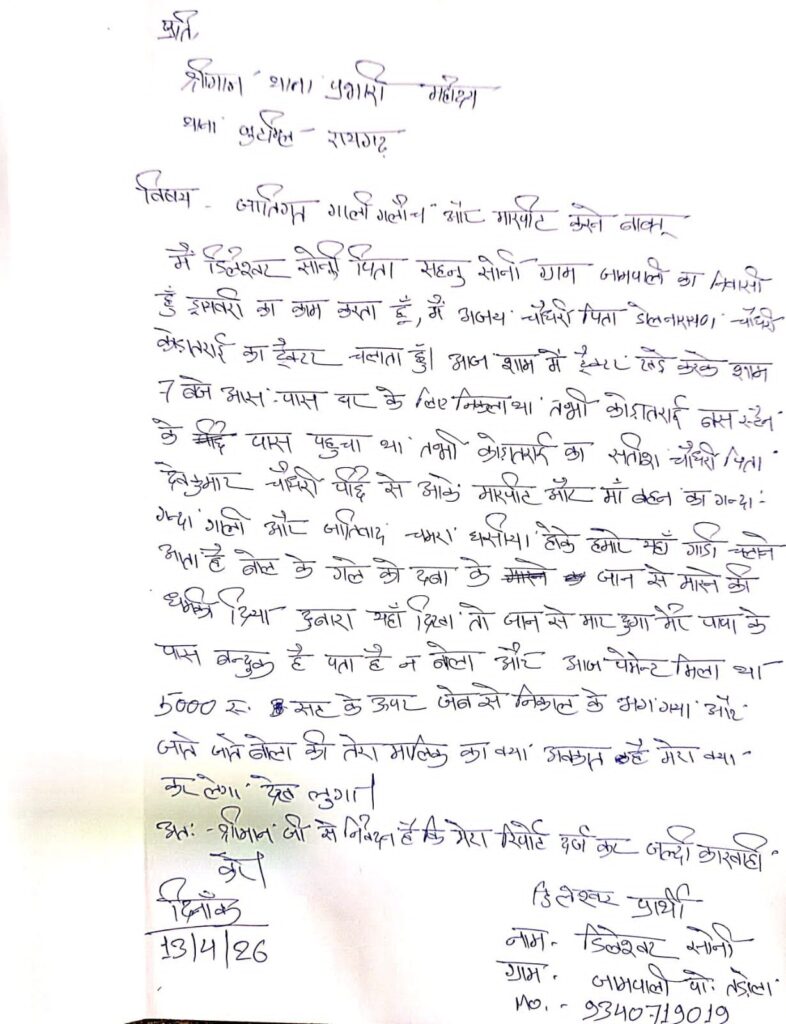 प्रति,
श्रीमान थाना प्रभारी महोदय
थाना जुटमिल - रायगढ़
विषय - जातिगत गाली गलौच और मारपीट करने बाबत्
मैं डिलेश्वर सोनी पिता सहनु सोनी ग्राम जामपाली का निवासी
हूँ ड्राइवरी का काम करता हूँ, मैं अजय चौधरी पिता डोलनारायण चौधरी
कोड़ातराई का ट्रैक्टर चलाता हूँ। आज शाम में ट्रैक्टर खड़े करके शाम
7 बजे आस-पास घर के लिए निकला था तभी कोड़ातराई बस स्टैन
के पास पहुचा था तभी कोड़ातराई का सतीश चौधरी पिता
देवकुमार चौधरी पीछे से आके मारपीट और माँ बहन का गन्दा-
गन्दा गाली और जातिवाद चमरा घसीया होके हमारे यहाँ गाडी चलाने
आता है बोल के गले को दबा के जान से मारने की
धमकी दिया दुबारा यहाँ दिखा तो जान से मार दुगा मेरे पापा के
पास बन्दुक है पता है न बोला और आज पेमेन्ट मिला था
5000 रू. सट के ऊपर जेब से निकाल के भाग गया और
जाते जाते बोला की तेरा मालिक का क्या अवकात है मेरा क्या
कर लेगा देख लुगा।
अतः - श्रीमान जी से निवेदन है कि मेरा रिपोर्ट दर्ज कर जल्दी कारवाही
करे।
दिनाँक
13/4/26
डिलेश्वर प्रार्थी
नाम - डिलेश्वर सोनी
ग्राम - जामपाली पो:
Mo. - 9340719019